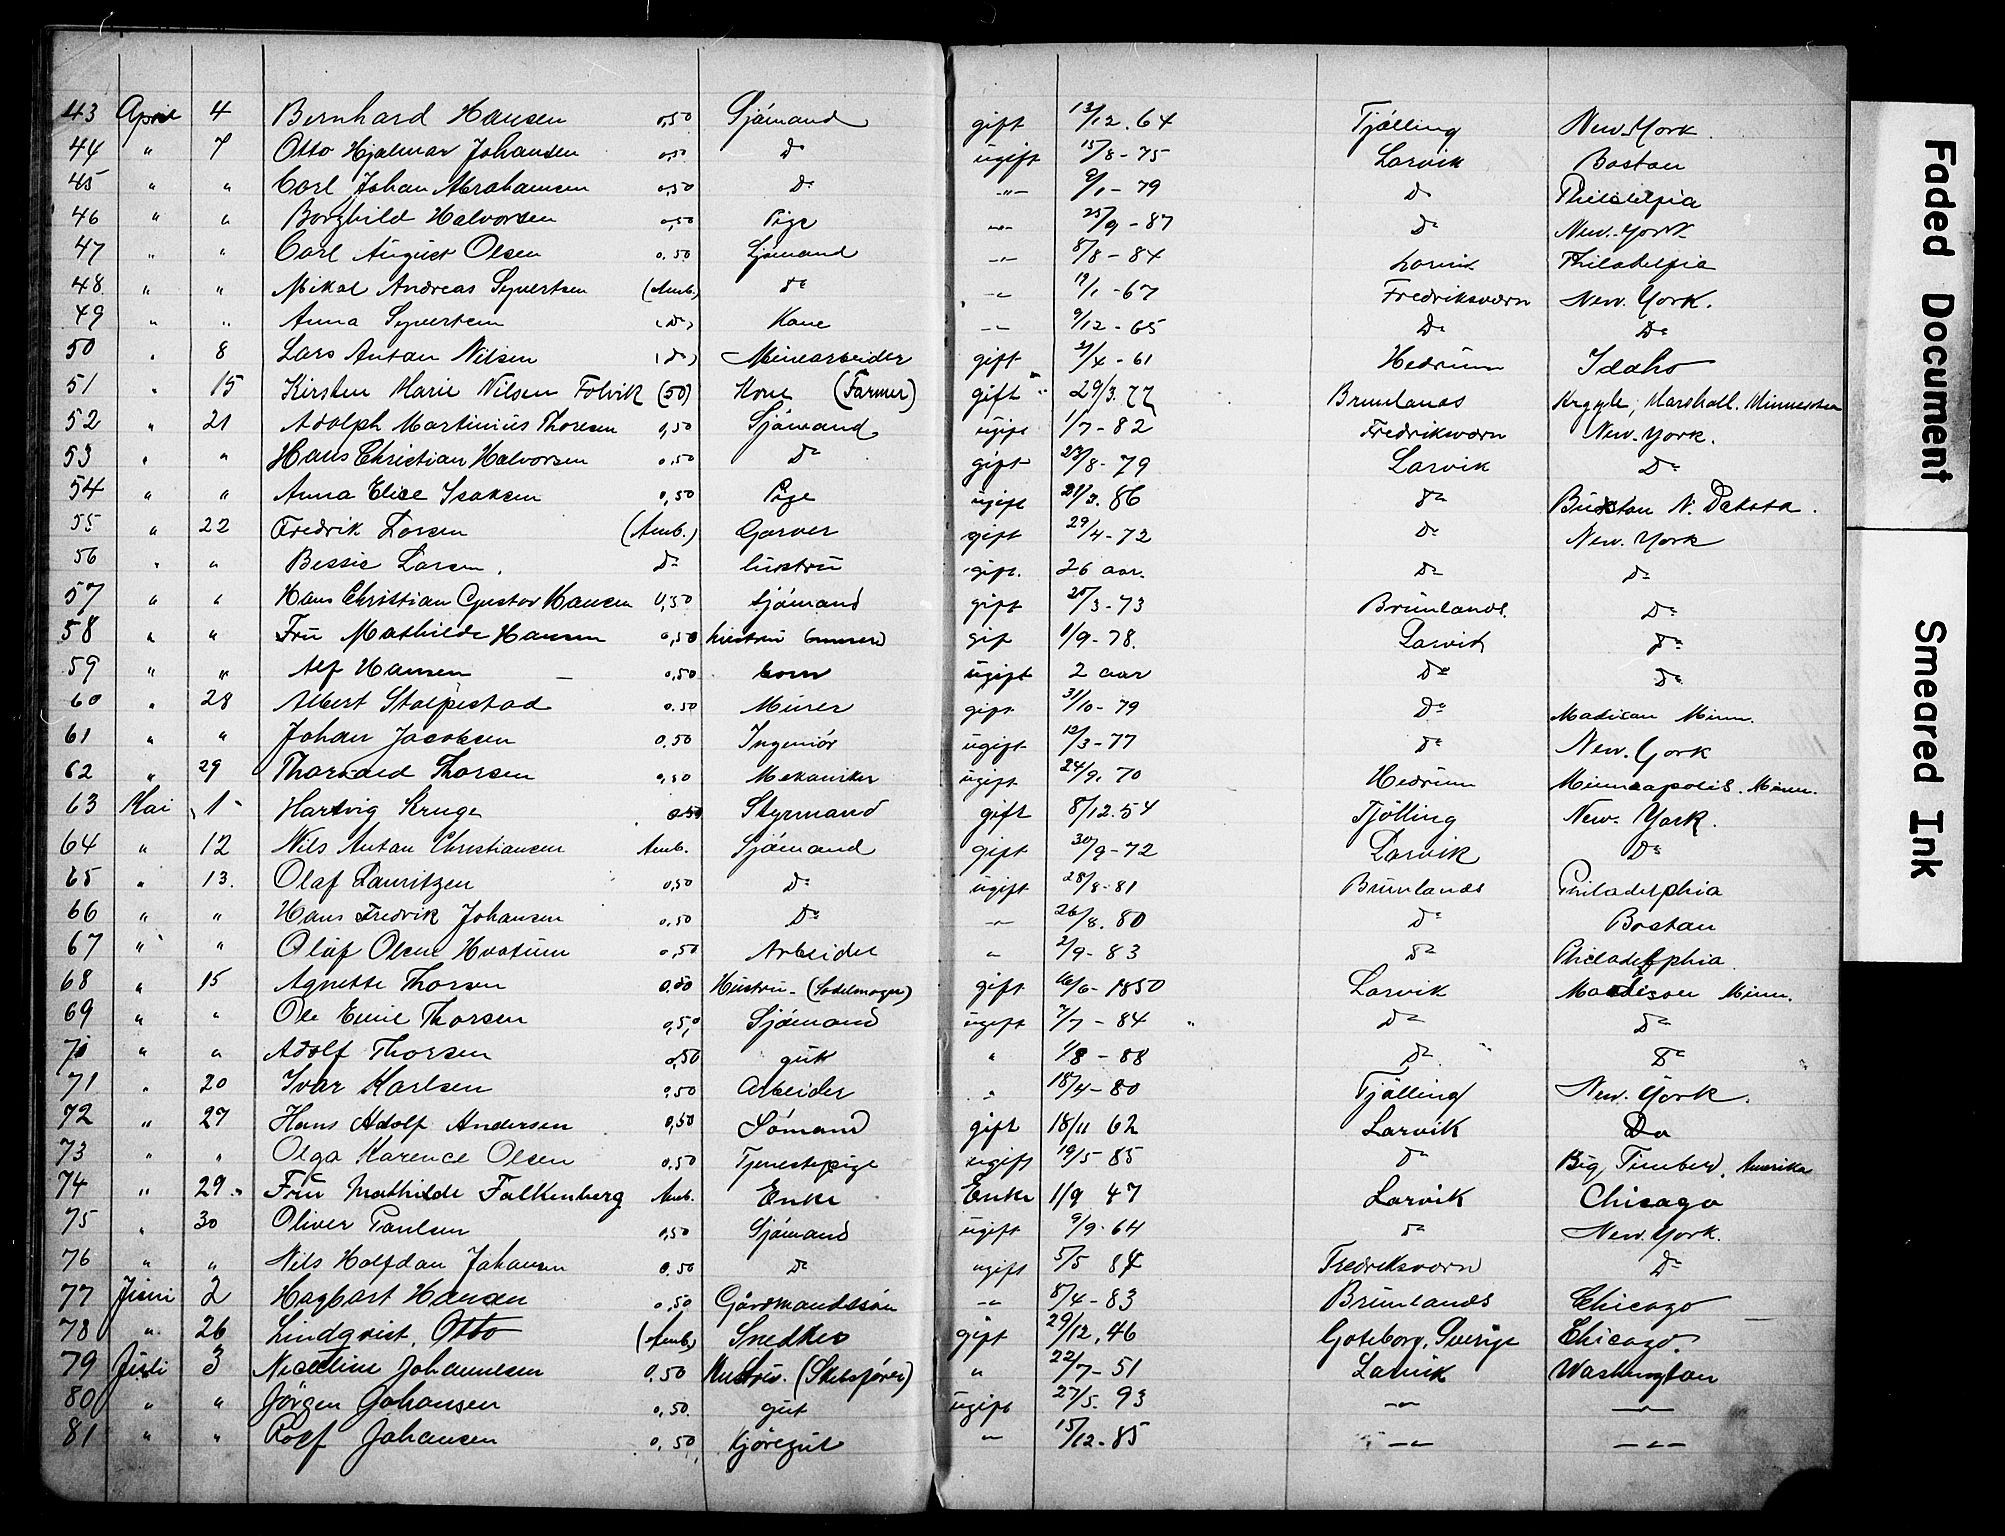 43 April 4 Bernhard Hansen 0,50 Sjömand gift 13/12. 64 Tjölling New York.
44 " 7 Otto Hjalmar Johansen 0,50 Do ugift 15/8 - 75 Larvik Boston
45 " " Carl Johan Abrahamsen 0,50 Do -"- 9/1 - 79 Do Philidelfia
46 " " Borghild Halvorsen 0,50 Pige -"- 25/9 - 87 Do New. York
47 " " Carl August Olsen 0,50 Sjömand -"- 8/8 - 84 Larvik Philadelfia
48 " " Mikal Andreas Syvertsen (Amb.) Do -"- 19/1 - 67 Fredriksværn New. York.
49 " " Anna Syvertsen (Do) Kone -"- 9/12 - 65 Do Do
50 " 8 Lars Anton Nilsen (Do) Minearbeider gift 2/4 - 61 Hedrum Idaho
51 " 15 Kirsten Marie Nilsen Folvik (50) Kone (Farmer) gift 29/3. 77 Brunlanes Argyle, Marshall. Minnesota
52 " 21 Adolph Martinius Thoresen 0,50 Sjömand ugift 1/7 - 82 Fredriksværn New. York.
53 " " Hans Christian Halvorsen 0.50 Do gift 23/8 - 79 Larvik Do
54 " " Anna Elise Isaksen 0,50 Pige ugift 21/3. 86 Do Buxton N. Dakota.
55 " 22 Fredrik Larsen (Amb.) Garver gift 29/4 - 72 Do New. York
56 " " Bessie Larsen. Do hustru gift. 26 aar. Do Do
57 " " Hans Christian Gustav Hansen 0,50 Sjömand gift 25/3 - 73 Brunlanes. Do
58 " " Fru Mathilde Hansen 0,50 hustru gif 1/9 - 78. Larvik Do
59 " " Alf Hansen — 0,50 barn ugift 2 aar Do Do
60 " 28 Albert Stalpestad 0.50 Murer gift 31/10 - 79 Do Madison Minn.
61 " " Johan Jacobsen 0.50 Ingeniör ugift 12/3 - 77 Do New. York
62 " 29 Thorvald Thorsen 0,50 Mekaniker ugift 24/9. 70 Hedrum Minneapolis. Minn.
63 Mai 1 Hartvig Kruge 0.50 Styrmand gift 8/12. 54 Tjölling New. York.
64 " 12 Nils Anton Christiansen Amb. Sjömand gift 30/9 - 72 Larvik Do
65 " 13. Olaf Lauritzen 0,50 Do ugift 28/8 - 81 Brunlanes Philadelphia
66 " " Hans Fredrik Johansen 0.50 Do -"- 26/8. 80 Do Boston
67 " " Olaf Olsen Hvatum 0,50 Arbeider " 2/9 - 83 Do Philadelphia
68 " 15 Agnette Thorsen 0.50 Hustru - (Sadelmager) gift 16/6 - 1850 Larvik Madison Minn.
69 " " Ole Emil Thorsen 0,50 Sjömand ugift 7/7 - 84 Do Do
70 " " Adolf Thorsen 0,50 gut " 1/8 - 88 Do Do
71 " 20 Ivar Karlsen 0.50 Arbeider " 18/4 - 80 Tjölling New. York.
72 " 27 Hans Adolf Andersen 0,50 Sömand gift 18/11 62 Larvik Do
73 " " Olga Karence Olsen 0.50 Tjenestepige ugift 19/5 - 85 Do Big, Timber, Amerika
74 " 29 Fru Mathilde Falkenberg Amb. Enke Enke 1/9 47 Larvik Chicago
75 " 30 Oliver Paulsen 0,50 Sjömand ugift 9/9 - 64 Do New. York.
76 " " Nils Halfdan Johansen 0.50 Do ugift 5/5 84 Fredriksværn Do
77 Juni 2 Hagbart Hansen 0,50 Gårdmandssön -"- 8/4 - 83 Brunlanes Chicago
78 " 26 Lindqvist, Otto (Amb.) Snedker gift 29/12. 46 Goteborg, Sverige Chicago.
79 Juli 3 Nicoline Johannesen 0.50 Hustru. (Skibsförer) " 22/7 - 51 Larvik Washington
80 " " Jörgen Johansen 0,50 gut ugift 27/5. 93 -"- -"-
81 " " Rolf Johansen 0,50 Kjöregut " 15/12 - 85 -"- -"-
Faded Document
Smeared Ink